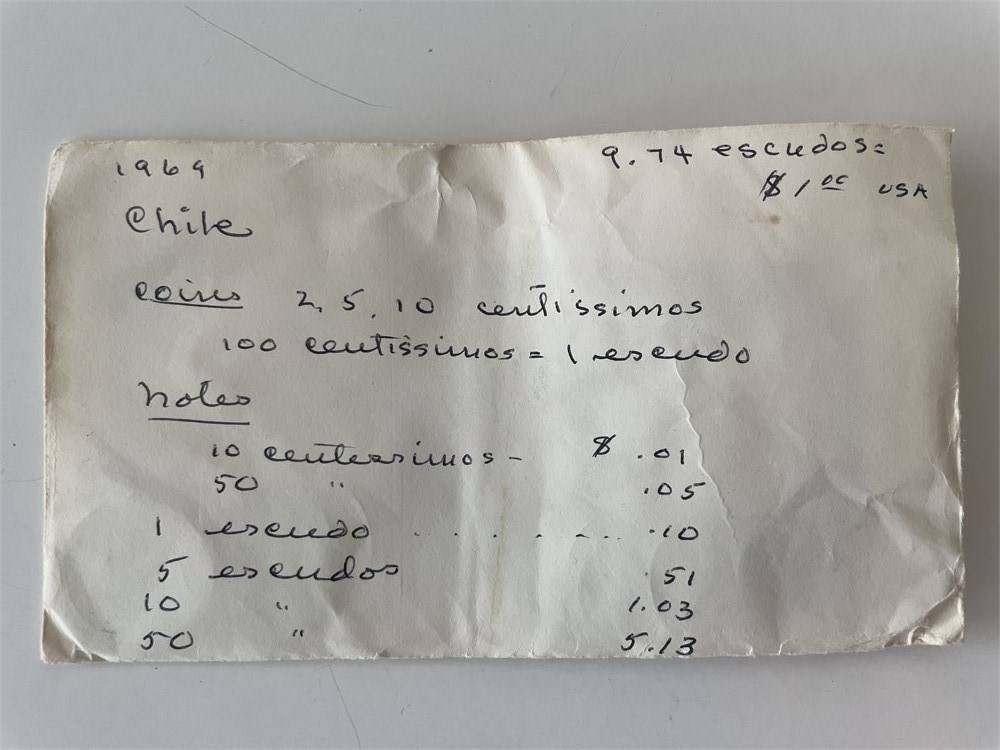 1969
9.74 escudos=
$1.00 USA
Chile
coins 2, 5, 10 centissimos
100 centissimos = 1 escudo
Notes
10 centessimos - $ .01
50 " .05
1 escudo . . . . . . . . .10
5 escudos .51
10 " 1.03
50 " 5.13